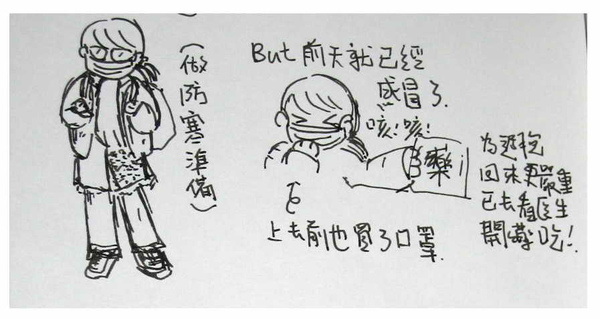 (做防寒準備)
But 前天就已經
感冒了.
咳! 咳!
藥
為避免
回來更嚴重
已去看医生
開藥吃!
上去前也買了口罩.